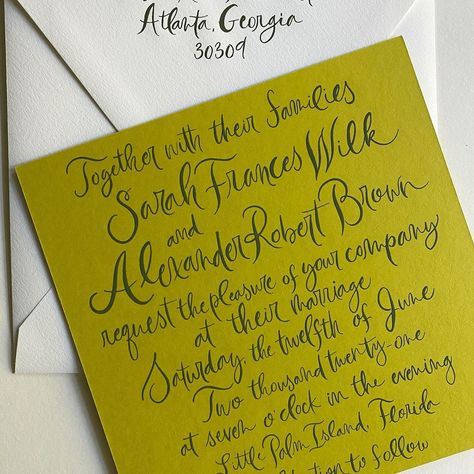 Atlanta, Georgia
30309
Together with their families
Sarah Frances Wilk
and
Alexander Robert Brown
request the pleasure of your company
at their marriage
Saturday, the twelfth of June
Two thousand twenty-one
at seven o'clock in the evening
Little Palm Island, Florida
to follow